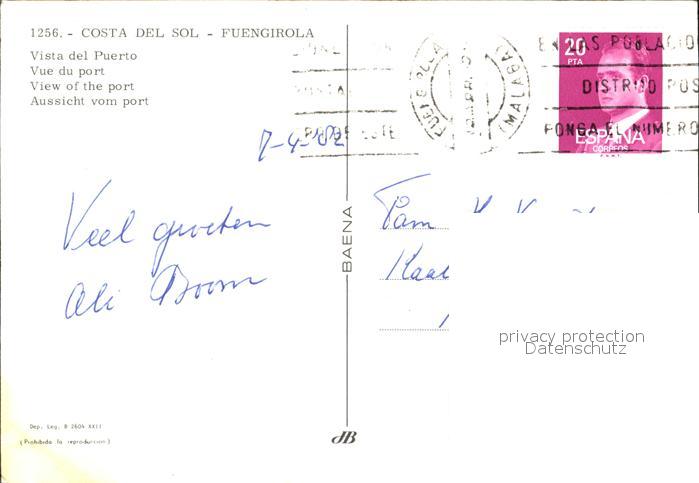 1256. - COSTA DEL SOL - FUENGIROLA
Vista del Puerto
Vue du port
View of the port
Aussicht vom port
20
PTA
ESPAÑA
CORREOS
EN LAS POBLACIO
DISTRITO POS
PONGA EL NUMERO
(MALAGA)
7-4-'82
Veel groeten
Ali Boom
BAENA
Fam
Kaal
privacy protection
Datenschutz
Dep. Leg. B 2604 XXII
(Prohibida la reproduccion)